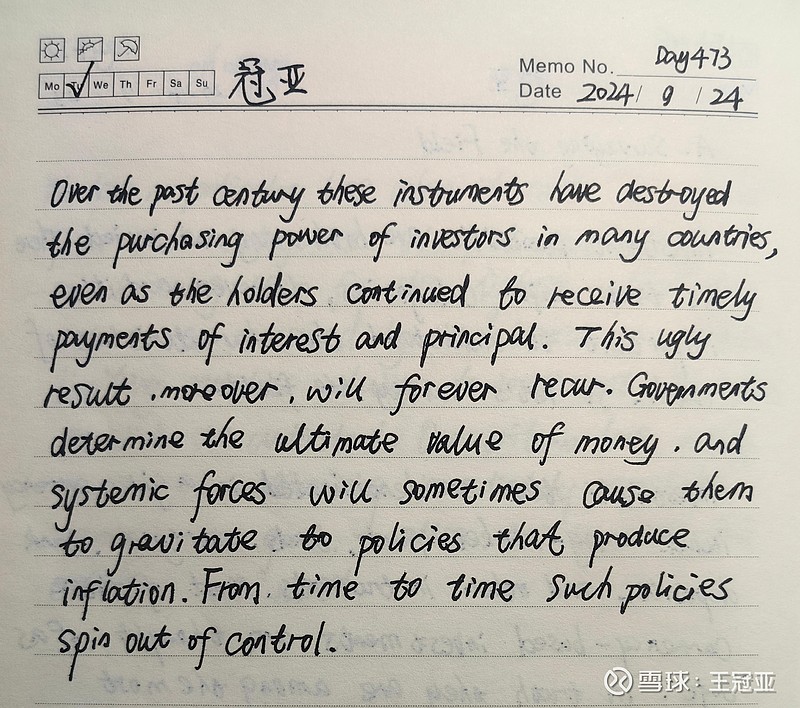 Memo No. Day473
Mo Tu We Th Fr Sa Su 冠亚
Date 2024/ 9 / 24
Over the past century these instruments have destroyed
the purchasing power of investors in many countries,
even as the holders continued to receive timely
payments of interest and principal. This ugly
result, moreover, will forever recur. Governments
determine the ultimate value of money, and
systemic forces will sometimes cause them
to gravitate to policies that produce
inflation. From time to time such policies
spin out of control.
雪球:王冠亚